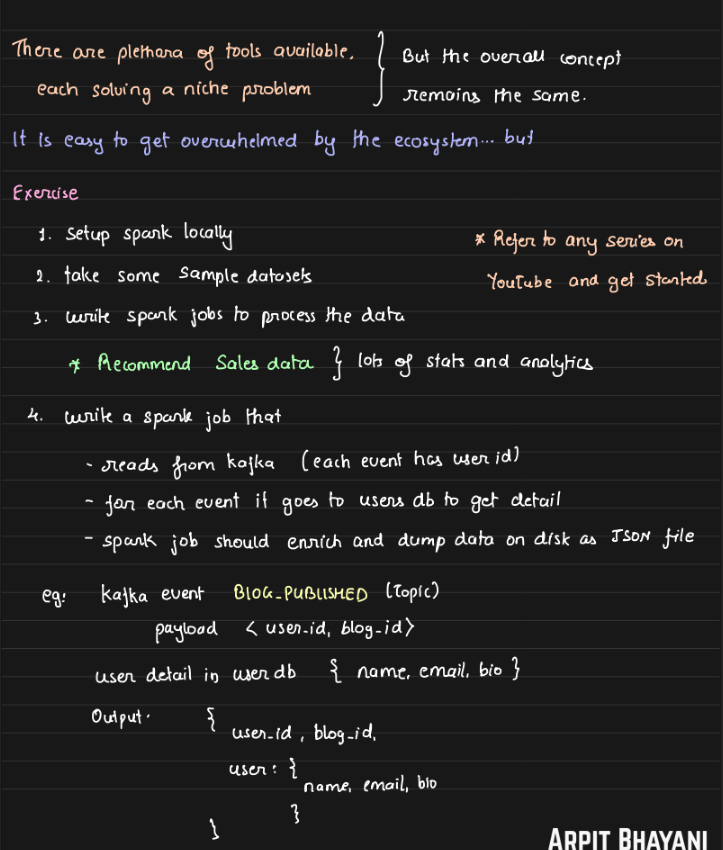 There are plethora of tools available,
each solving a niche problem
But the overall concept
remains the same.
It is easy to get overwhelmed by the ecosystem... but
Exercise
1. Setup spark locally
2. take some sample datasets
* Refer to any series on
YouTube and get started
3. write spark jobs to process the data
* Recommend Sales data } lots of stats and analytics
4. write a spark job that
- reads from kafka (each event has user id)
- for each event it goes to users db to get detail
- spark job should enrich and dump data on disk as JSON file
eg: kafka event BLOG_PUBLISHED (Topic)
payload < user_id, blog_id>
user detail in user db { name, email, bio }
Output. {
user_id, blog_id,
user: {
name, email, bio
}
}
ARPIT BHAYANI